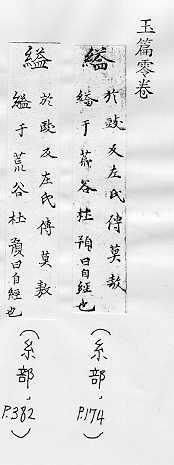 玉篇零卷
縊
於豉反左氏傳莫敖
縊于荒谷杜預曰自經也
(糸部,
P.174)
縊
於豉反左氏傳莫敖
縊于荒谷杜預曰自經也
(糸部,
P.382)